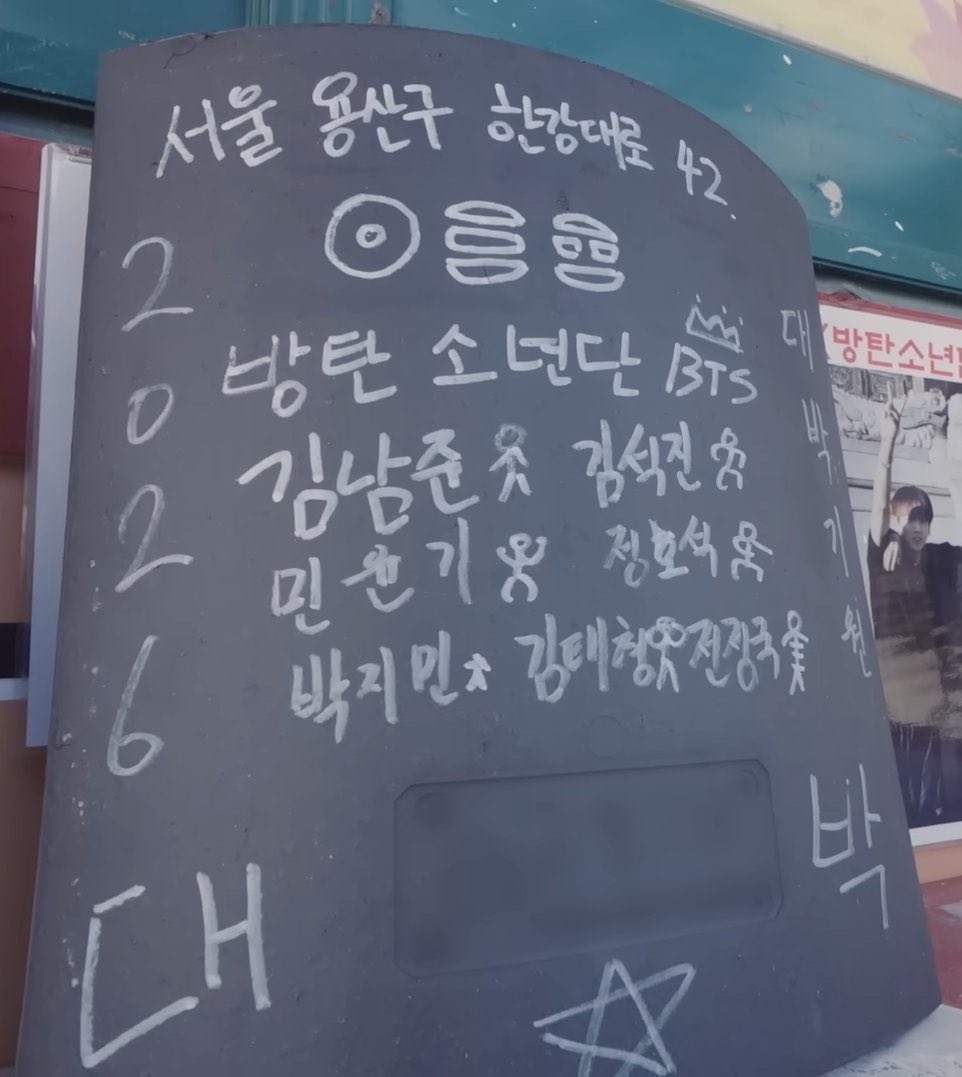 서울 용산구 한강대로 42.
방탄 소년단 BTS
김남준 김석진
민윤기 정호석
박지민 김태형 전정국
2026
대박기원
대 박
방탄소년